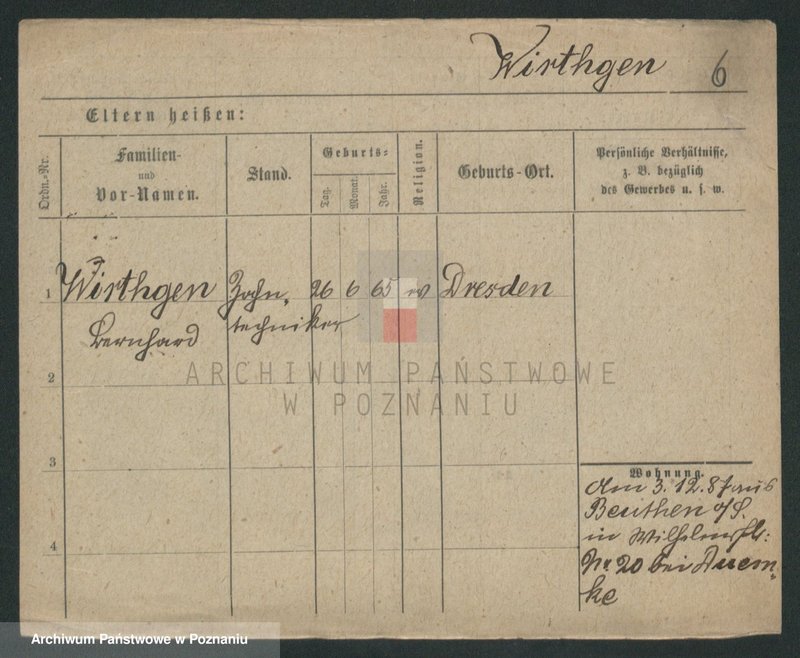 Wirthgen 6
Eltern heißen:
Ordn.-Nr.
Familien-
und
Vor-Namen.
Stand.
Geburts-
Tag.
Monat.
Jahr.
Religion.
Geburts-Ort.
Persönliche Verhältnisse,
z. B. bezüglich
des Gewerbes u. s. w.
1 Wirthgen Zahn- 26 6 65 ev Dresden
Bernhard techniker
2
3
4
Wohnung.
Am 3.12.87 aus
Beuthen o/S.
in Wilhelmstr:
Nr 20 bei
ARCHIWUM PAŃSTWOWE
W POZNANIU
Archiwum Państwowe w Poznaniu